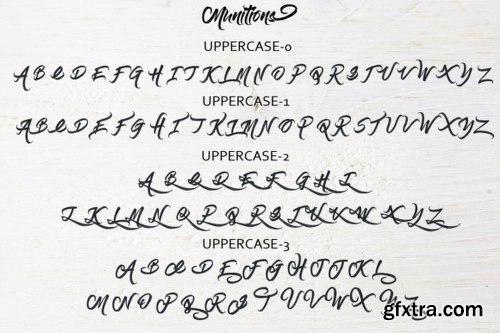 Munitions
UPPERCASE-0
A B C D E F G H I J K L M N O P Q R S T U V W X Y Z
UPPERCASE-1
A B C D E F G H I J K L M N O P Q R S T U V W X Y Z
UPPERCASE-2
A B C D E F G H I
J K L M N O P Q R S T U V W X Y Z
UPPERCASE-3
A B C D E F G H I J K L
M N O P Q R S T U V W X Y Z
gfxtra.com